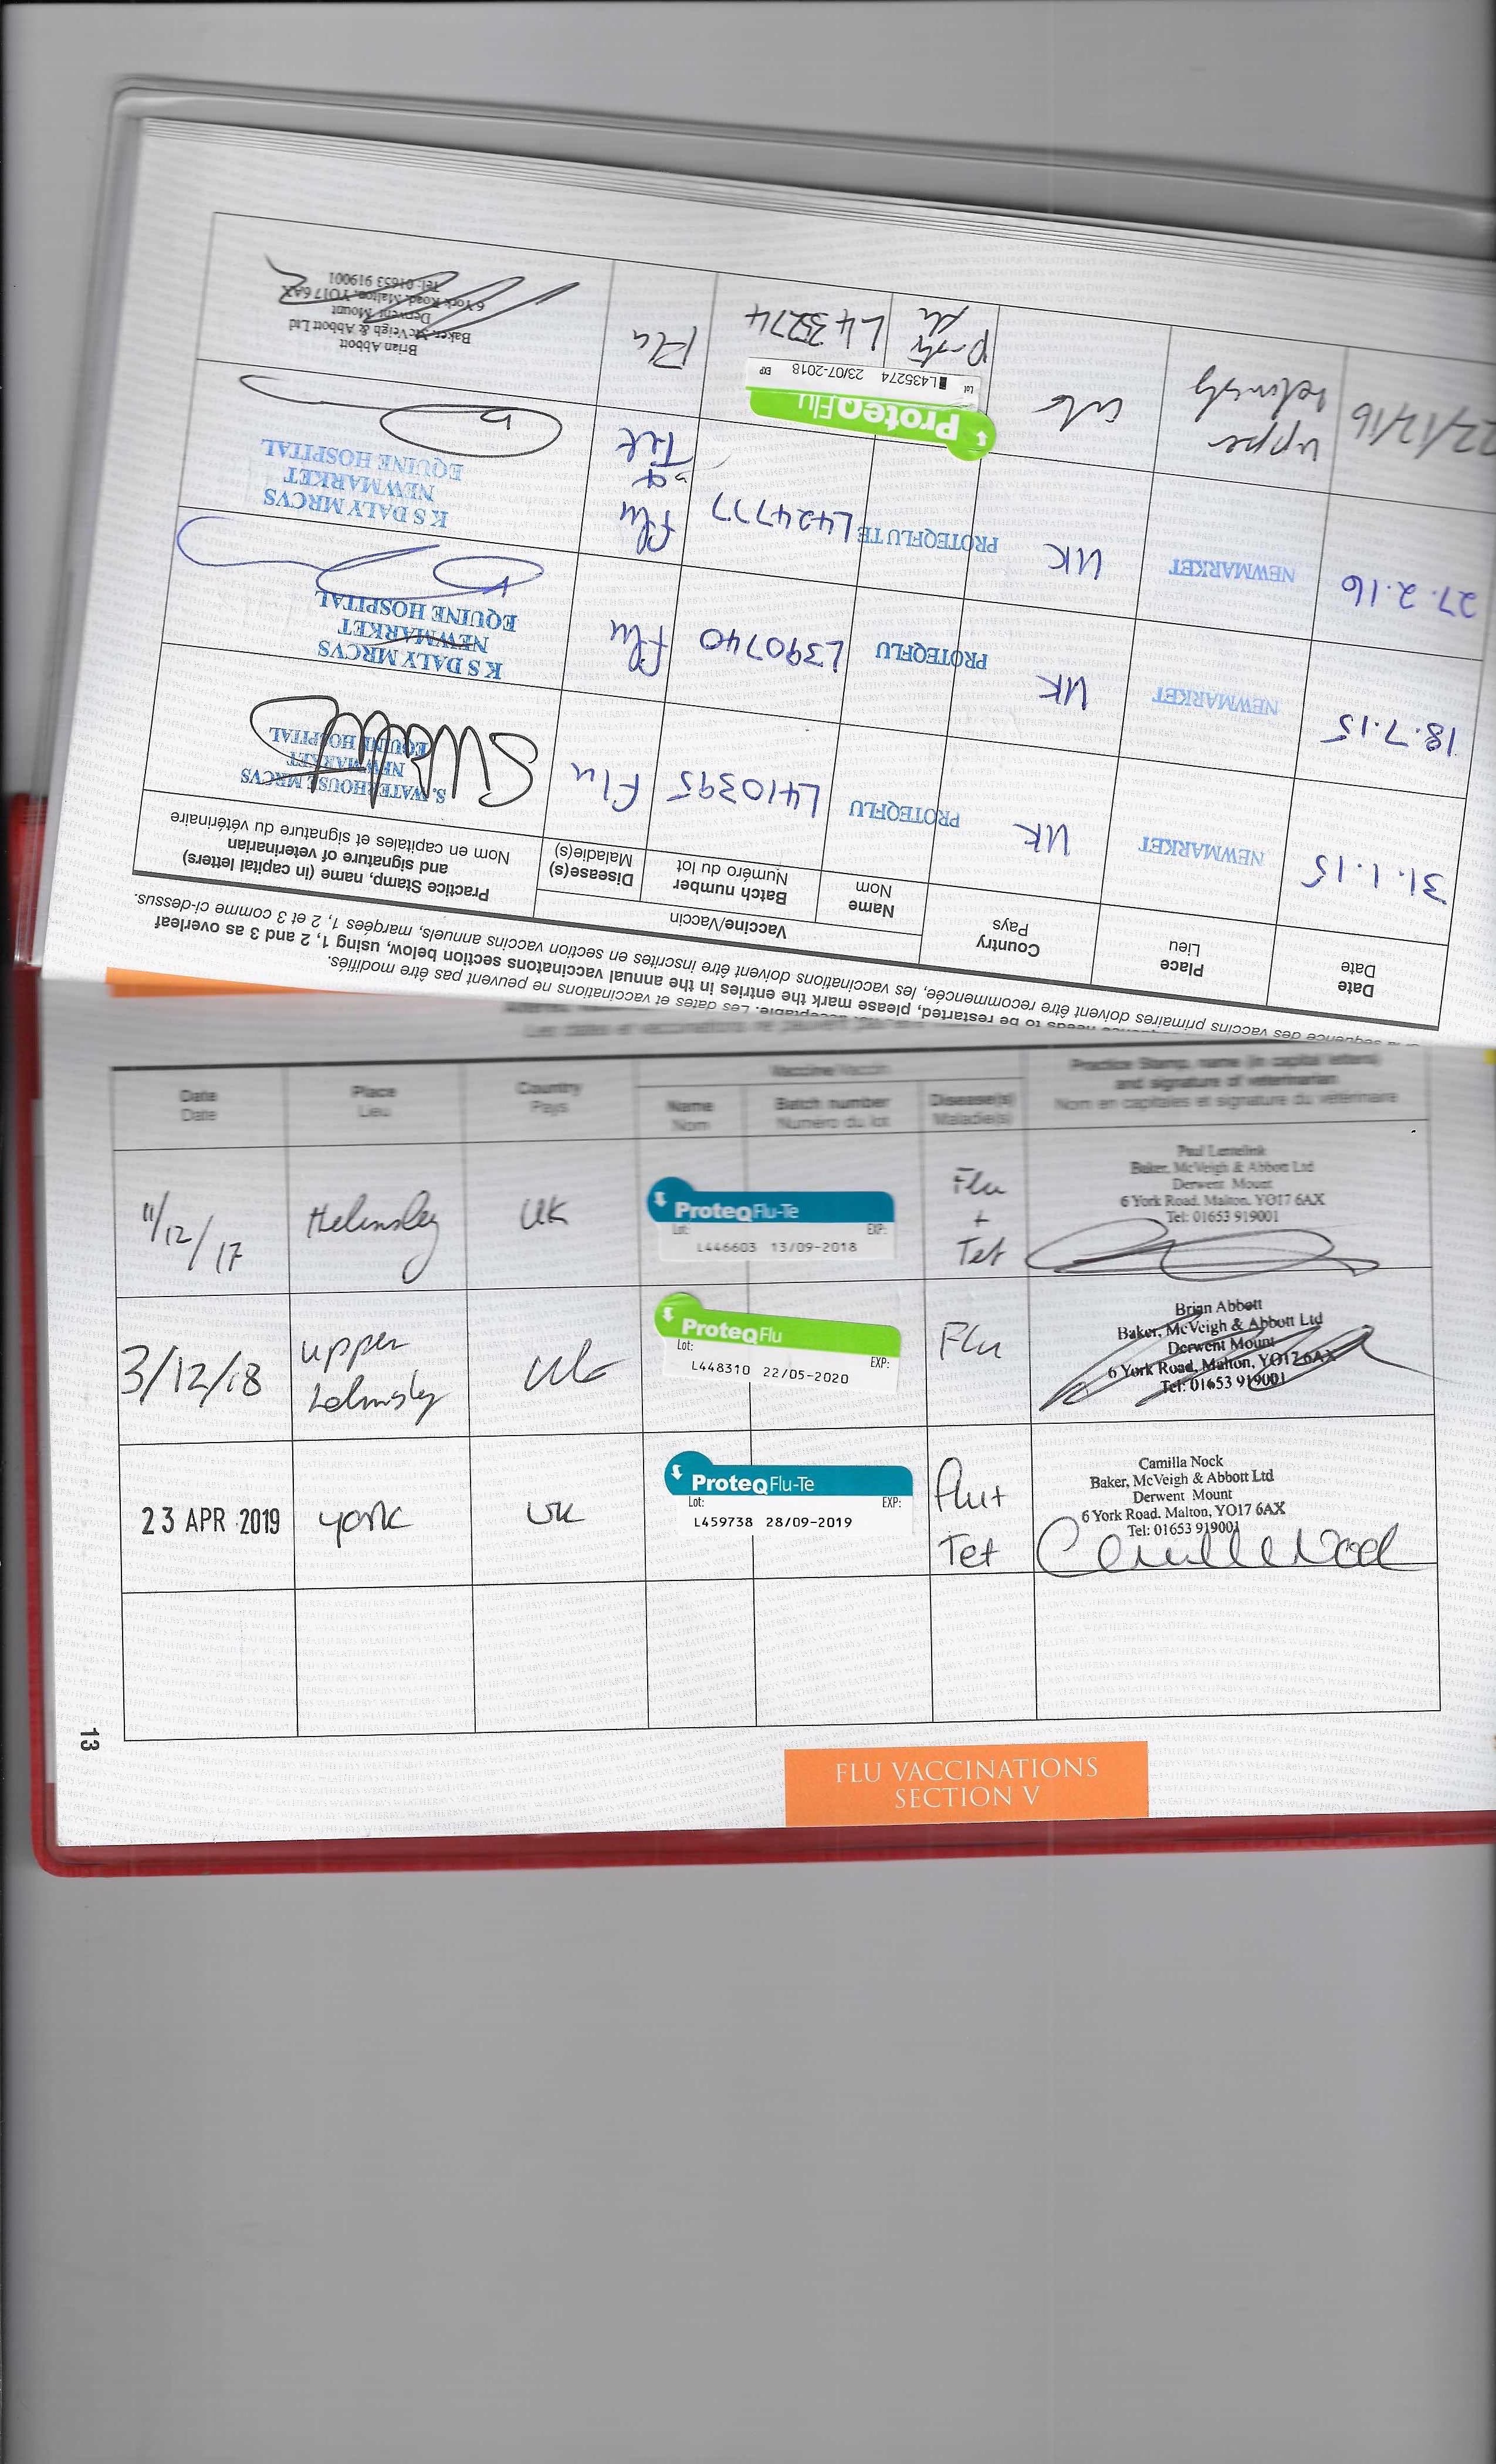 sequence des vaccins primaires doivent être recommencée, les vaccinations doivent être inscrites en section vaccins annuels, marqées 1, 2 et 3 comme ci-dessus.
needs to be restarted, please mark the entries in the annual vaccinatons section below, using 1, 2 and 3 as overleaf
acceptable. Les dates et vaccinations ne peuvent pas être modifiés.
Date
Date
Place
Lieu
Country
Pays
Vaccine/Vaccin
Name
Nom
Batch number
Numéro du lot
Disease(s)
Maladie(s)
Practice Stamp, name (in capital letters)
and signature of veterinarian
Nom en capitales et signature du vétérinaire
31.1.15
NEWMARKET
UK
PROTEQFLU
L410395
Flu
S. WATERHOUSE MRCVS
NEWMARKET
EQUINE HOSPITAL
18.7.15
NEWMARKET
UK
PROTEQFLU
L390740
Flu
K S DALY MRCVS
NEWMARKET
EQUINE HOSPITAL
27.2.16
NEWMARKET
UK
PROTEQFLU TE
L424777
Flu
&
Tet
K S DALY MRCVS
NEWMARKET
EQUINE HOSPITAL
22/12/16
upper
helmsley
UK
ProteqFlu
Lot L435274 23/07-2018 EXP
Proteq
flu
L435274
Flu
Brian Abbott
Baker, McVeigh & Abbott Ltd
Derwent Mount
6 York Road, Malton, YO17 6AX
Tel: 01653 919001
Date
Date
Place
Lieu
Country
Pays
Vaccine/Vaccin
Name
Nom
Batch number
Numéro du lot
Disease(s)
Maladie(s)
Practice Stamp, name (in capital letters)
and signature of veterinarian
Nom en capitales et signature du vétérinaire
11/12/17
Helmsley
UK
ProteqFlu-Te
Lot: EXP:
L446603 13/09-2018
Flu
+
Tet
Paul Lentelink
Baker, McVeigh & Abbott Ltd
Derwent Mount
6 York Road. Malton, YO17 6AX
Tel: 01653 919001
3/12/18
upper
helmsley
UK
ProteqFlu
Lot: EXP:
L448310 22/05-2020
Flu
Brian Abbott
Baker, McVeigh & Abbott Ltd
Derwent Mount
6 York Road, Malton, YO17 6AX
Tel: 01653 919001
23 APR 2019
york
UK
ProteqFlu-Te
Lot: EXP:
L459738 28/09-2019
Flu+
Tet
Camilla Nock
Baker, McVeigh & Abbott Ltd
Derwent Mount
6 York Road. Malton, YO17 6AX
Tel: 01653 919001
Camilla Nock
13
FLU VACCINATIONS
SECTION V